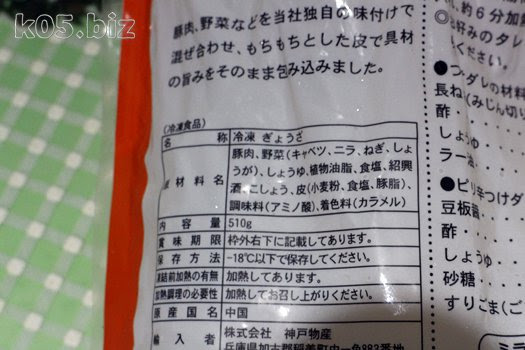 k05.biz
豚肉、野菜などを当社独自の味付けで
混ぜ合わせ、もちもちとした皮で具材
の旨みをそのまま包み込みました。
(冷凍食品)
名 称 冷凍 ぎょうざ
原材料名 豚肉、野菜(キャベツ、ニラ、ねぎ、しょ
うが)、しょうゆ、植物油脂、食塩、紹興
酒、こしょう、皮(小麦粉、食塩、豚脂)、
調味料(アミノ酸)、着色料(カラメル)
内容量 510g
賞味期限 枠外右下に記載してあります。
保存方法 -18℃以下で保存してください。
凍結前加熱の有無 加熱してあります。
加熱調理の必要性 加熱してお召し上がりください。
原産国名 中国
輸入者 株式会社 神戸物産
兵庫県加古郡稲美町中一色883番地
、約6分加
◎お好みのタレ
ください。
●つけダレの材料
長ねぎ(みじん切り
酢
しょうゆ
ラー油
●ピリ辛つけダ
豆板醤
酢
しょうゆ
砂糖
すりごま(ご